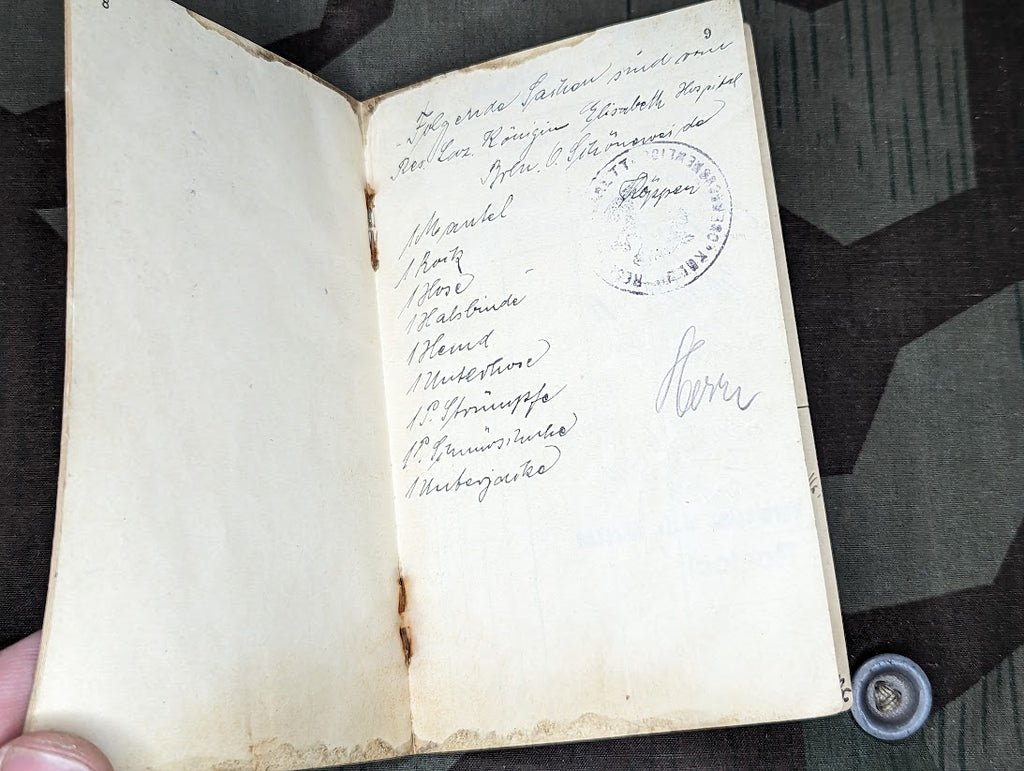 8
9
Folgende Sachen sind vom
Res. Laz. Königin Elisabeth Hospital
Brln. O. Schöneweide
Köppen
1 Mantel
1 Rock
1 Hose
1 Halsbinde
1 Hemd
1 Unterhose
1 P. Strümpfe
1 P. Schnürschuhe
1 Unterjacke